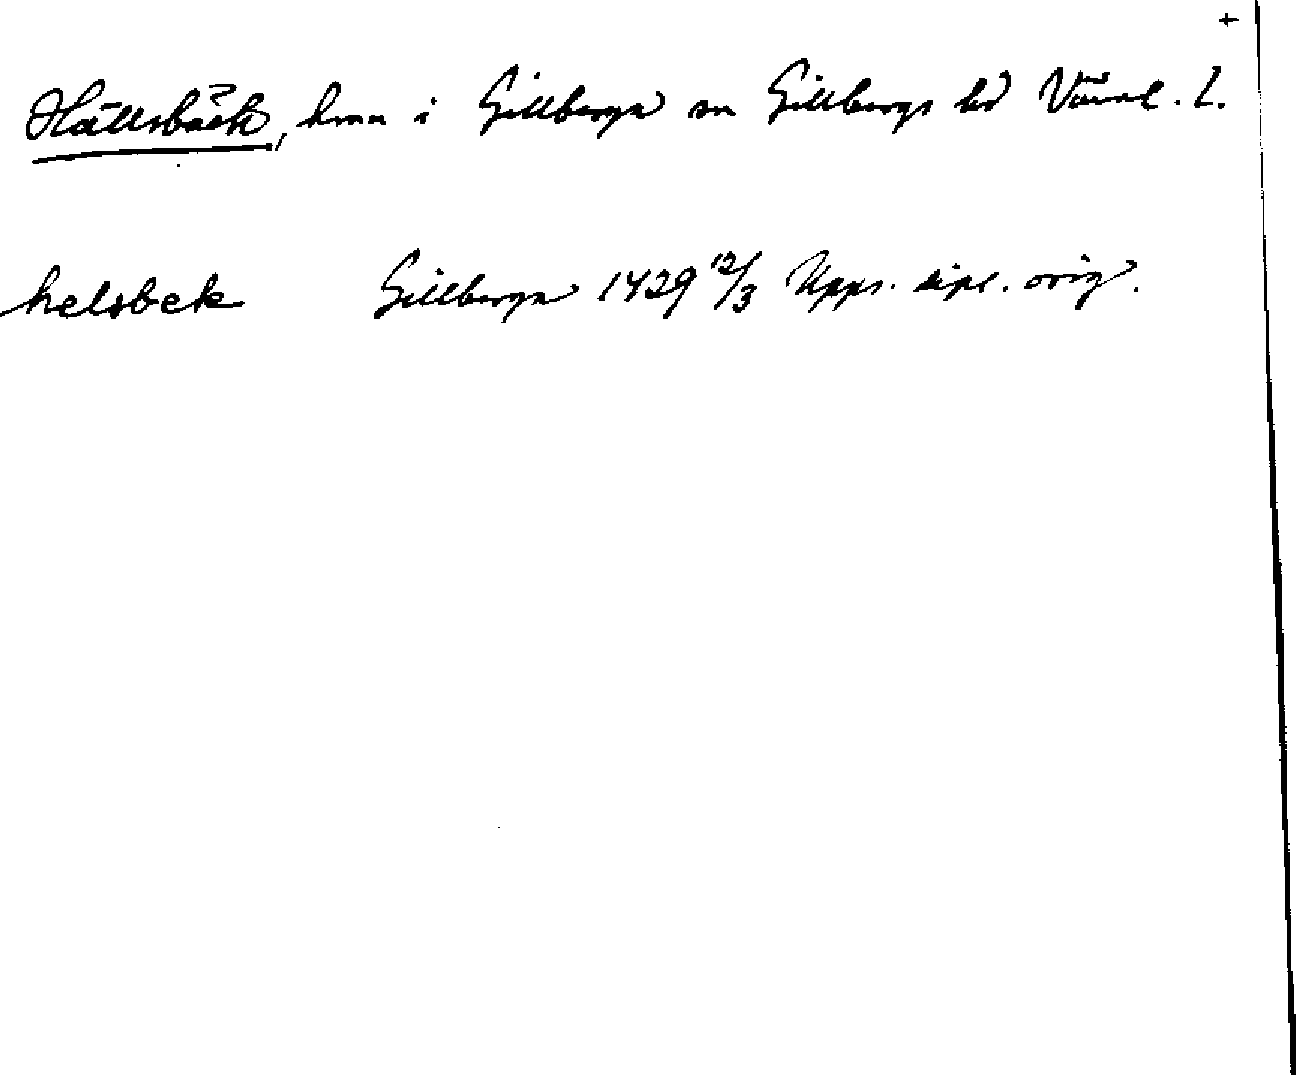 +
Hällsbäck, hmn i Gillberga sn Gillbergs hd Värml. l.
helsbek Gillberga 1429 12/3 Upps. dipl. orig.